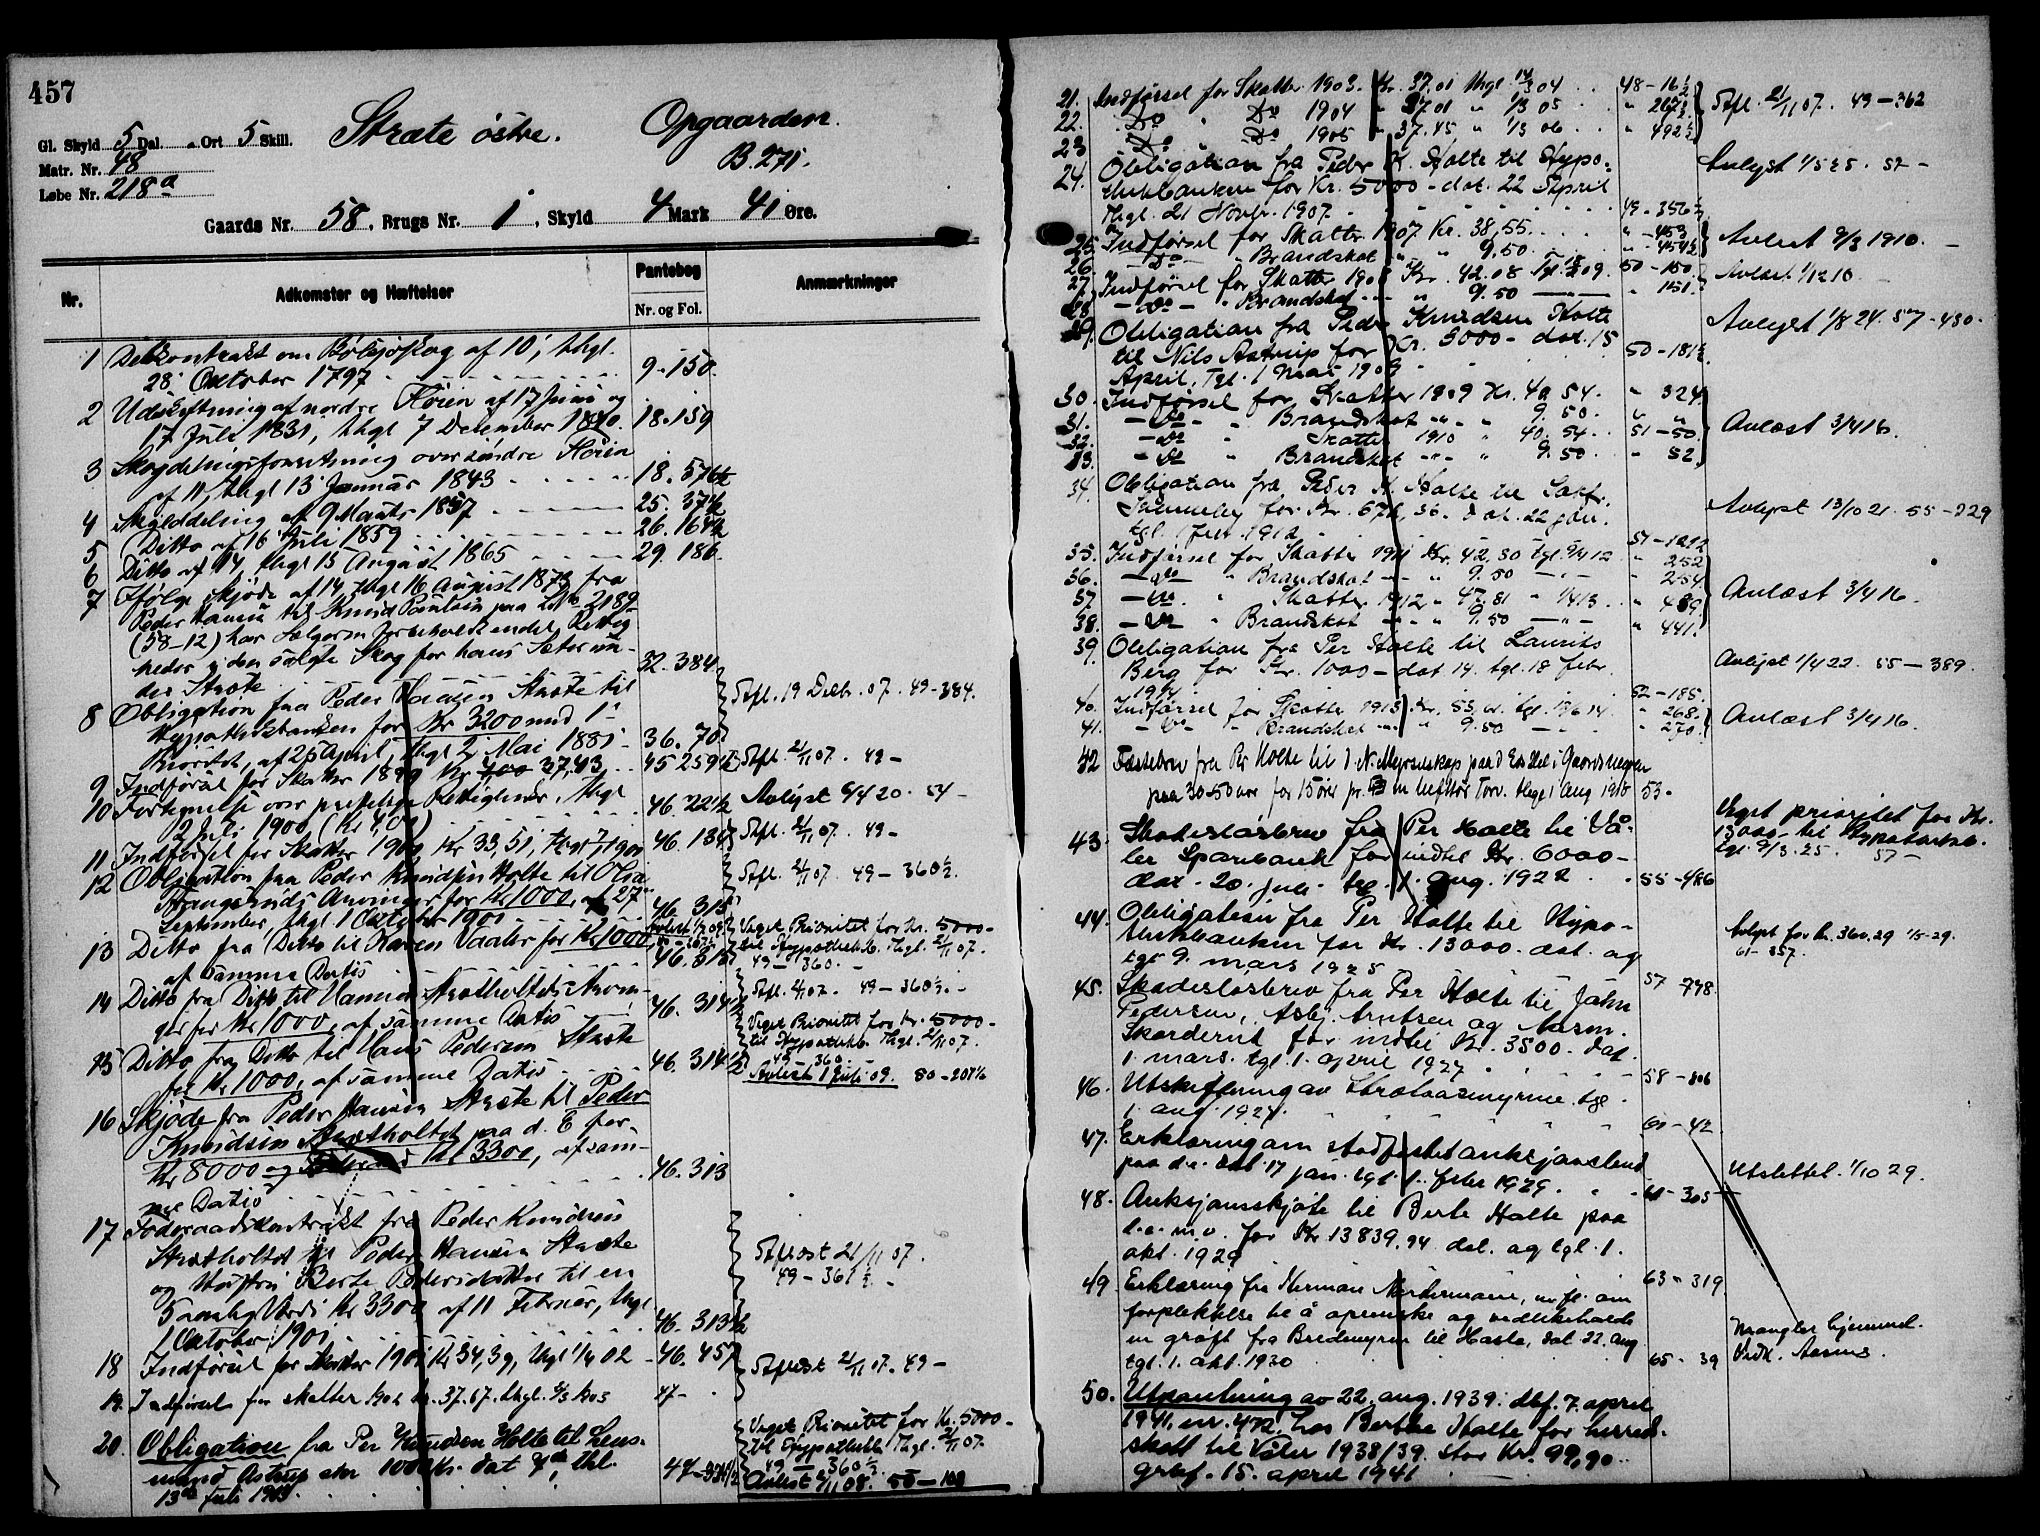 457
Gl. Skyld 5 Dal. - Ort 5 Skill. Stræte östre. Opgaarden.
Matr. Nr. 48 B. 271.
Løbe Nr. 218a
Gaards Nr. 58, Brugs Nr. 1, Skyld 4 Mark 41 Øre.
Nr. Adkomster og Hæftelser Pantebog Nr. og Fol. Anmærkninger
1 Delkontrakt om af 10', thgl.
28' Oktober 1797 9-150
2 Udskiftning af nordre Höien af 17 Juni og
17 Juli 1831, thgl 7 December 1840. 18-159
3 Skogdelingsforretning over söndre Höien
af 11, thgl 13 Januar 1843 18.576½
4 Skylddeling af 9 Marts 1857 25.374½
5 Ditto af 16 Juli 1859 26.164½
6 Ditto af 14, thgl 15 August 1865 29.186
7 Ifölge Skjöde af 14 thgl 16 August 1873 fra
Peder Hansen til Knud Paulsen paa Lbno 218g
(58-12) har Sælgeren forbeholdt endel Rettig
heder i den solgte Skog for hans Sæter un-
der Stræte 32.384
8 Obligation fra Peder Hansen Stræte til
Hypothekbanken for Kr 3200 med 1'
Prioritet, af 26 April, thgl 2 Mai 1881 36.70 Afl. 19 Decbr. 07. 49-384.
9 Indförsel for Skatter 1899 Kr 37,43 45 259½ Afl. 21/11 07. 49-
10 Fortegnelse over Rettigheder, thgl
2 Juli 1900 46.22½ Avlyst 6/4 20. 54-
11 Indförsel for Skatter 1900 Kr 33,51, 46.134 Afl. 21/11 07. 49-
12 Obligation fra Peder Knudsen Holte til Olia
Haugsrunds Arvinger for Kr 1000, af 27
September, thgl 1 Oktober 1901 46.313 Afl. 21/11 07. 49-360½.
13 Ditto fra Ditto til Karen Vaaler for Kr 1000,
af samme Datis 46.313 Veget Prioritet for Kr. 5000-
til Hypothekb. Thgl. 21/11 07.
49-360.
14 Ditto fra Ditto til Hansen Strætholtets Arvin-
ger for Kr 1000, af samme Datis 46.314 Afl. 21/11 07. 49-360½.
15 Ditto fra Ditto til Hans Pedersen Stræte
for Kr 1000, af samme Datis 46.314½ Veget Prioritet for Kr. 5000-
til Hypothekb. Thgl. 21/11 07.
49-360.
Avlæst 1 Juli 09. 50-207½
16 Skjöde fra Peder Hansen Stræte til Peder
Knudsen Strætholtet paa d. E for
Kr 8000 og 3300, af sam-
me Datis 46.313
17 Föderaadskontrakt fra Peder Knudsen
Strætholtet til Peder Hansen Stræte
og Hustru Berte Pedersdatter til en
5 aarlig Værdi Kr 3300 af 11 Februar, thgl
1 Oktober 1901 46.313½ Aflæst 21/11 07.
49-361½.
18 Indförsel for Skatter 1901 Kr 34,39, thgl 1/4 02 46.457 Aflæst 21/11 07. 49-
19. Indförsel for skatter 1902 Kr. 37.67. thgl. 2/3 1903 47-
20. Obligation fra Per Knudsen Holte til Lens-
mand Astrup stor 1000 Kr. dat 7de, thl.
13de Juli 1903 47-331½ Veget Prioritet for Kr. 5000-
til Hypothekb. Thgl. 21/11 07.
49-360½.
Avlæst 2/11 08. 50-100
21. Indførsel for Skatter 1903. Kr. 37.01 thgl 14/3 04 48-16½
22. Do " Do 1904 " 37.01 " 1/3 05 " 267½ Afl. 21/11 07. 49-362
23 Do " Do 1905 " 37.45 " 1/3 06 " 492½
24. Obligation fra Peder K. Holte til Hypo-
thekbanken for Kr. 5000- dat. 22 April
thgl. 21 Novbr. 1907. 49-356½ Avlyst 1/5 25. 57-
25. Indførsel for Skatter 1907 Kr. 38,55 " -453 Avlæst 9/3 1910.
26. -Do- " Brandskat " " 9.50 " -454½
27. Indførsel for Skatter 1908 Kr. 42.08 Tgl. 09. 50-150. Avlæst. 1/12 10
28. -Do- " Brandskat " " 9.50 " 151.
29. Obligation fra Peder Knudsen Holte
til Nils Astrup for Kr. 3000- dat. 15
April, Tgl. 1 Mai 1909 50-181½ Avlyst 1/8 24. 57-430-
30. Indførsel for Skatter 1909 Kr. 40.54. " 324
31. -Do- " Brandskat " " 9.50. " "
32. -Do- " Skatter 1910 " 40.54 51-50. Avlæst 3/4 16.
33. -Do- " Brandskat " " 9.50 " 52
34. Obligation fra Peder K. Holte til
for Kr. 672,36. Dat. 22 jan.
tgl. 1 febr. 1912 51-1212 Avlyst 13/10 21. 55-229
35. Indførsel for Skatter 1911 Kr. 42,30 tgl. 9/4 12 " 252
36. -Do- " Brandskat " " 9.50 " 254 Avlæst 3/4 16.
37. -Do- " Skatter 1912 " 47,81 " 1/4 13 " 439
38. -Do- " Brandskat " " 9.50 " 441.
39. Obligation fra Per Holte til Laurits
Berg for Kr. 1000- dat 14. tgl. 18 febr.
1914 52-185. Avlyst 1/4 22. 55-389.
40. Indførsel for Skatter 1913 Kr. 53, tgl. 13/6 14. " 268 Avlæst 3/4 16.
41. -Do- " Brandskat " " 9.50 " 270
42 Fæstebrev fra Per Holte til D. N. Myrselskap paa d. E. del i Gaardsmyren
paa 30-50 aar for 15 øre pr. m³ lufttör Torv. thgl. 1 Aug 1918 53-
43. Skadesløsbrev fra Per Holte til Vå-
ler Sparebank for indtil Kr. 6000-
dat. 20. juli. tgl. 1. aug. 1922 55-486 Veget prioritet for Kr.
13000- til Hypotekbk.
tgl. 9/3 25. 57-
44. Obligation fra Per Holte til Hypo-
thekbanken for Kr. 13000. dat. og
tgl 9. mars 1925 57-778. Avlyst for kr. 360.29 1/5 29.
61-357.
45. Skadesløsbrev fra Per Holte til Johan
Pedersen, Asbj. Arntsen og Aasm.
Skarderut for indtil Kr. 3500. dat.
1. mars. tgl. 1. april 1927 58-806
46. Utskiftning av Strætaasmyrene. tgl.
1. aug. 1927. 60-42
47. Erklæring om stadfestet auksjonsbud
paa d.e. dat 17 jan. tgl. 1. febr 1929. 61-305 Utslettet. 1/10 29.
48. Auksjonsskjøte til Berte Holte paa
d.e. m.v. for Kr 13839,94 dat. og tgl. 1.
okt. 1929 63-319
49 Erklæring fra Herman Westermoen, m. fl. om
forplektelse til å oprenske og vedlikeholde
en grøft fra Bredemyren til Hasla, dat. 22. aug
tgl. 1. okt. 1930 65-39 Mangler hjemmel.
Vedk. Aasnes.
50. Utpantning av 22. aug. 1939. dbf. 7. april
1941. nr. 472, hos Berthe Holte for herred-
skatt til Våler 1938/39. stor Kr. 99,90.
grbf. 15. april 1941